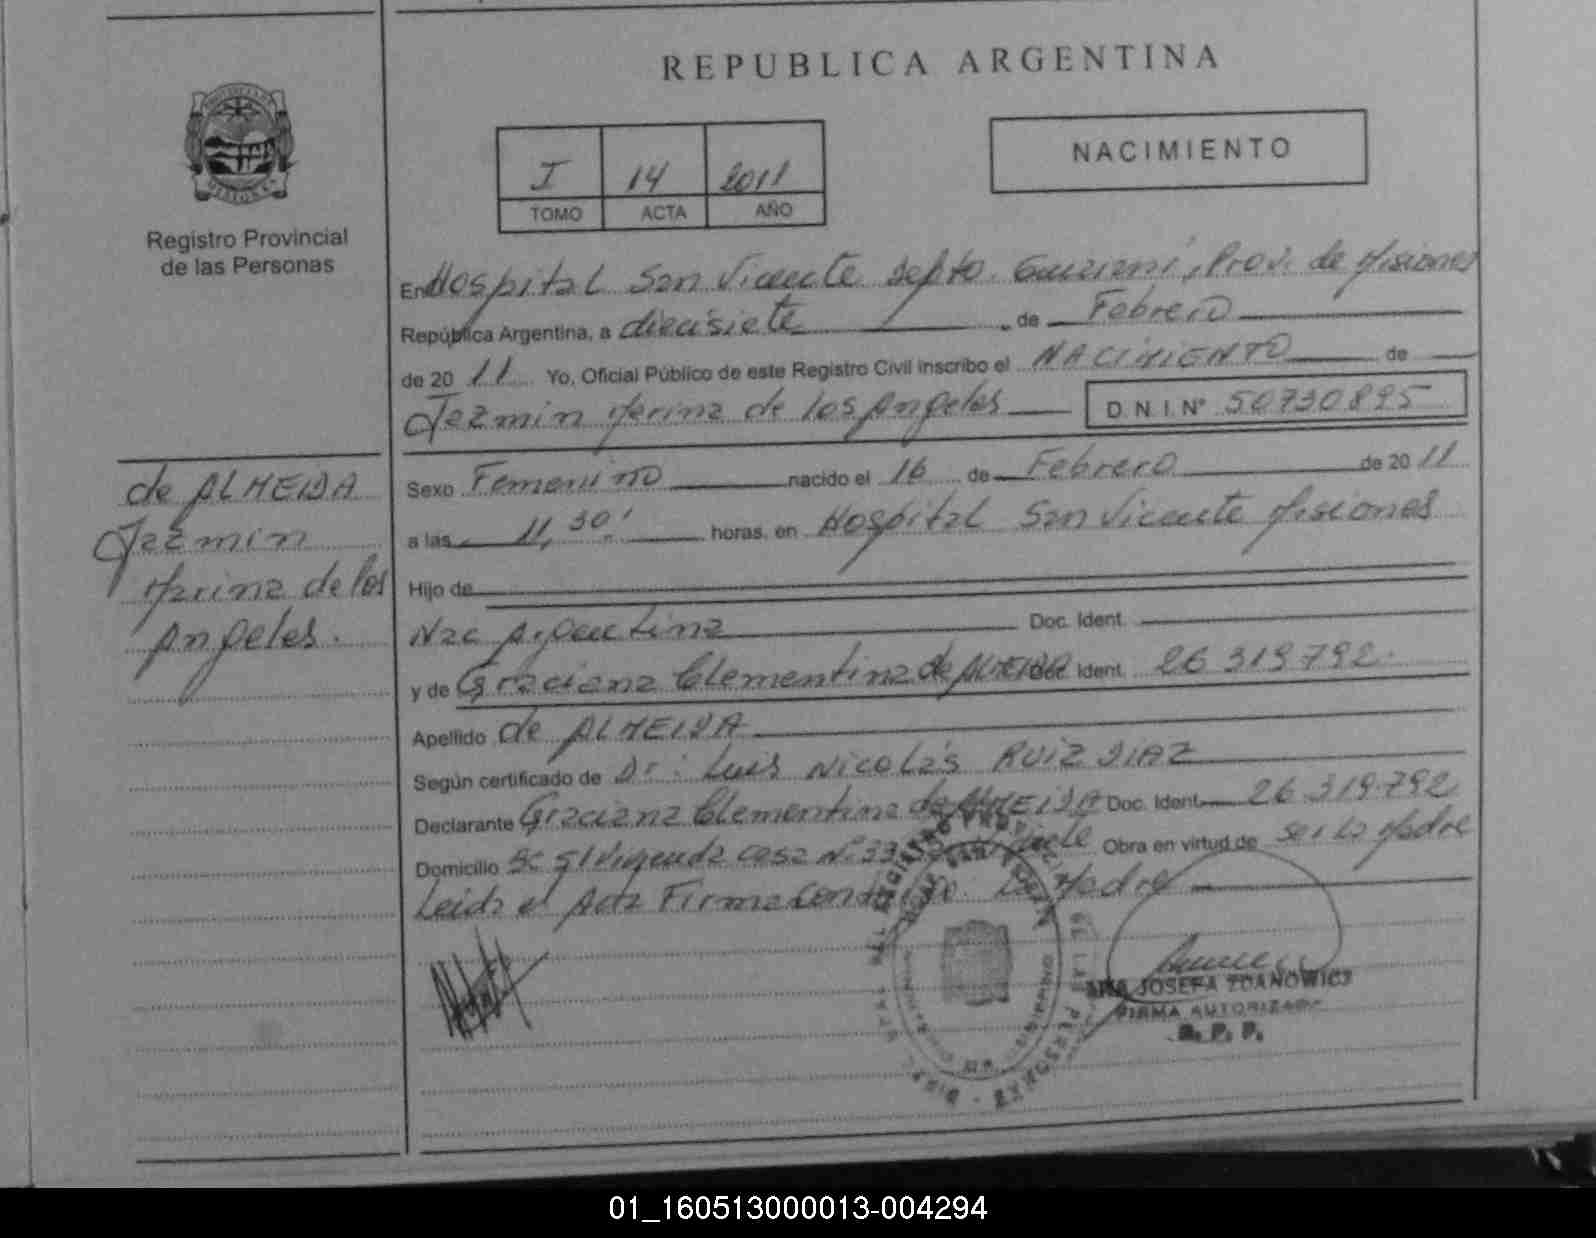 REPUBLICA ARGENTINA
NACIMIENTO
I 14 2011
TOMO ACTA AÑO
Registro Provincial
de las Personas
En Hospital San Vicente Depto. Guarani, Prov. de Misiones
República Argentina, a diecisiete de Febrero
de 20 11 Yo, Oficial Público de este Registro Civil inscribo el NACIMIENTO de
Jazmin Marina de los Angeles D.N.I. Nº 50730895
de ALMEIDA
Jazmin
Marina de los
Angeles.
Sexo Femenino nacido el 16 de Febrero de 20 11
a las 11,30' horas, en Hospital San Vicente Misiones
Hijo de
Nac Argentina Doc. Ident.
y de Graciana Clementina de ALMEIDA Doc. Ident. 26 319 792
Apellido de ALMEIDA
Según certificado de Dr: Luis Nicolás RUIZ DIAZ
Declarante Graciana Clementina de ALMEIDA Doc. Ident. 26 319 792
Domicilio casa Nº 33 Obra en virtud de ser la Madre
Leida el Acta Firma La Madre
ANA JOSEFA ZDANOWICZ
FIRMA AUTORIZADA
R. P. P.
01_160513000013-004294